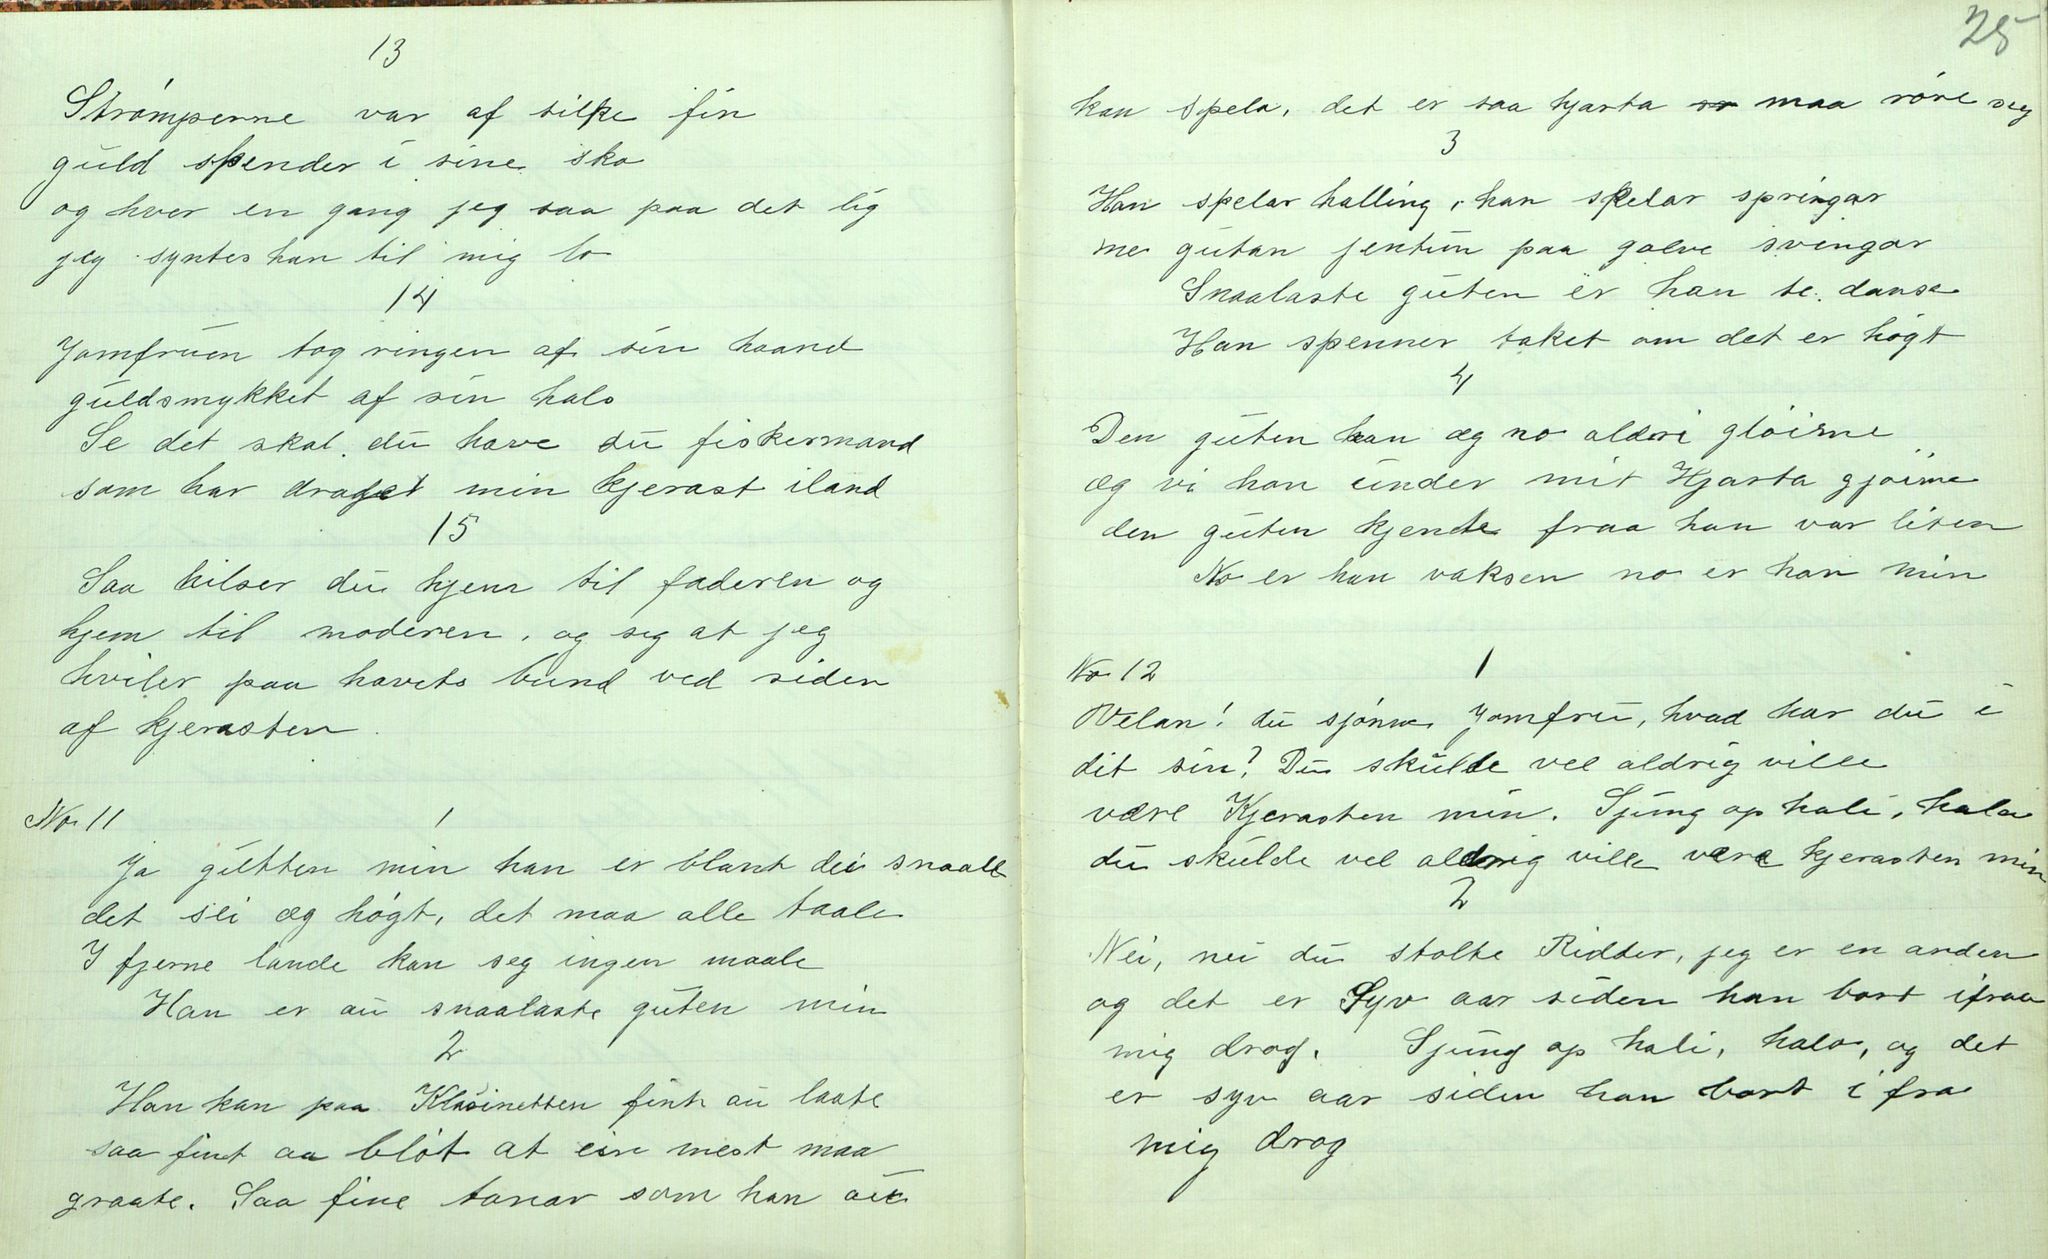 13
Strømperne var af silke fin
guld spender i sine sko
og hver en gang jeg saa paa det lig
jeg syntes han til mig lo
14
Jomfruen tog ringen af sin haand
guldsmykket af sin hals
Se det skal du have du fiskermand
som har draget min kjerast iland
15
Saa hilser du hjem til faderen og
hjem til moderen, og sig at jeg
hviler paa havets bund ved siden
af kjerasten.
No 11 1
Ja gutten min han er blant dei snaale
det sei æg høgt, det maa alle taale
I fjerne lande kan seg ingen maale
Han er au snaalaste guten min
2
Han kan paa Klarinetten fint au laate
saa fint aa bløt at ein mest maa
graate. Saa fine tonar som han au
25
kan spela, det er saa hjarta maa røre seg
3
Han spelar halling, han spelar springar
me gutan jentun paa golve svingar
Snaalaste guten er han te danse
Han spenner taket om det er høgt
4
Den guten kan æg no aldri gløime
æg vi han under mit Hjarta gjøime
den guten kjende fraa han var liten
No er han vaksen no er han min
No 12 1
Velan! du sjønne Jomfru, hvad har du i
dit sin? Du skulde vel aldrig ville
være Kjerasten min. Sjung op hali, hala
du skulde vel aldrig ville være kjerasten min
2
Nei, nei du stolte Ridder, jeg er en anden
og det er Syv aar siden han bort ifraa
mig drog. Sjung op hali, hala, og det
er syv aar siden han bort i fra
mig drog